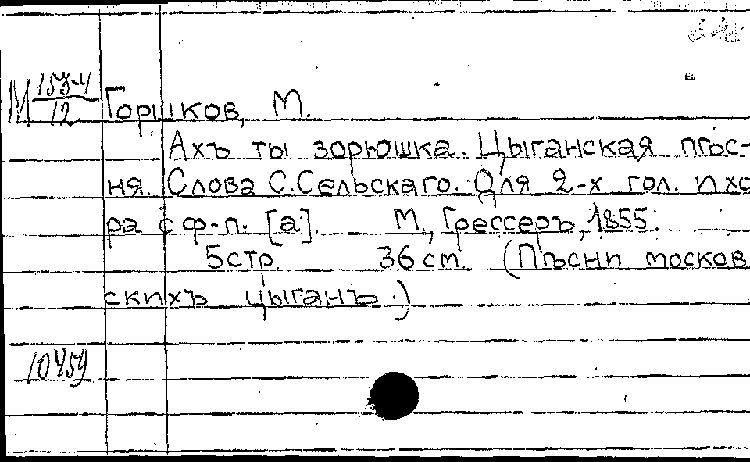 М 153-4
12
Горшков, М.
Ахъ ты зорюшка. Цыганская пѣс-
ня. Слова С.Сельскаго. Для 2-х гол. и хо
ра с ф-п. [а]. М., Грессеръ, 1855.
5стр. 36см. (Пѣсни москов
скихъ цыганъ.)
10459